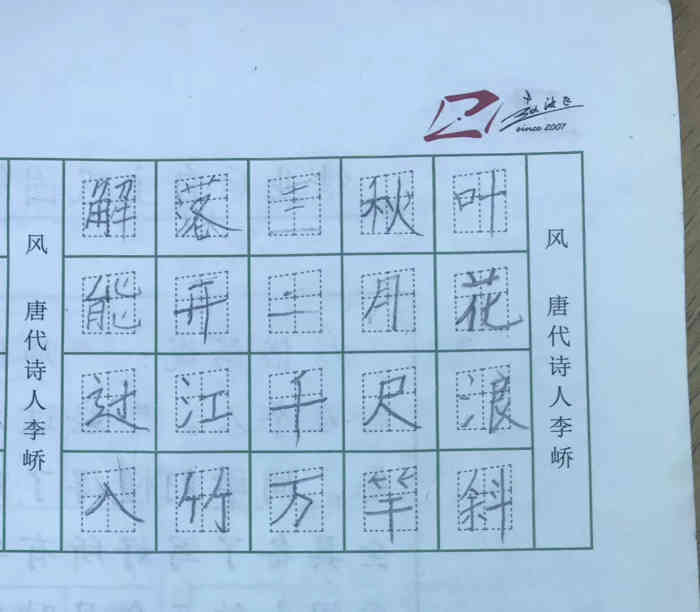 since 2007
风 唐代诗人李峤
解落三秋叶
能开二月花
过江千尺浪
入竹万竿斜
风 唐代诗人李峤